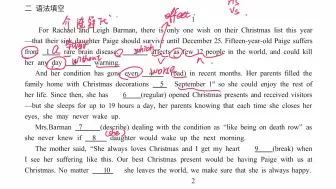 二 语法填空
For Rachel and Leigh Barman, there is only one wish on their Christmas list this year
—that their sick daughter Paige should survive until December 25. Fifteen-year-old Paige suffers
from 1 rare brain disease, 2 affects as few 12 people in the world, and could kill
her any day 3 warning.
And her condition has gone even 4 (bad) in recent months. Her parents filled the
family home with Christmas decorations 5 September 1st so she could enjoy the rest of
her life. Since then, she has 6 (regular) opened Christmas presents and received visitors
—but she sleeps for up to 19 hours a day, her parents knowing that each time she closes her
eyes, she may never wake up.
Mrs.Barman 7 (describe) dealing with the condition as "like being on death row" as
she never knew if 8 (she) daughter would wake up the next morning.
The mother said, "She always loves Christmas and I get my heart 9 (break) when
I see her suffering like this. Our best Christmas present would be having Paige with us at
Christmas. No matter 10 she leaves the world, we make sure that she is always happy.
2